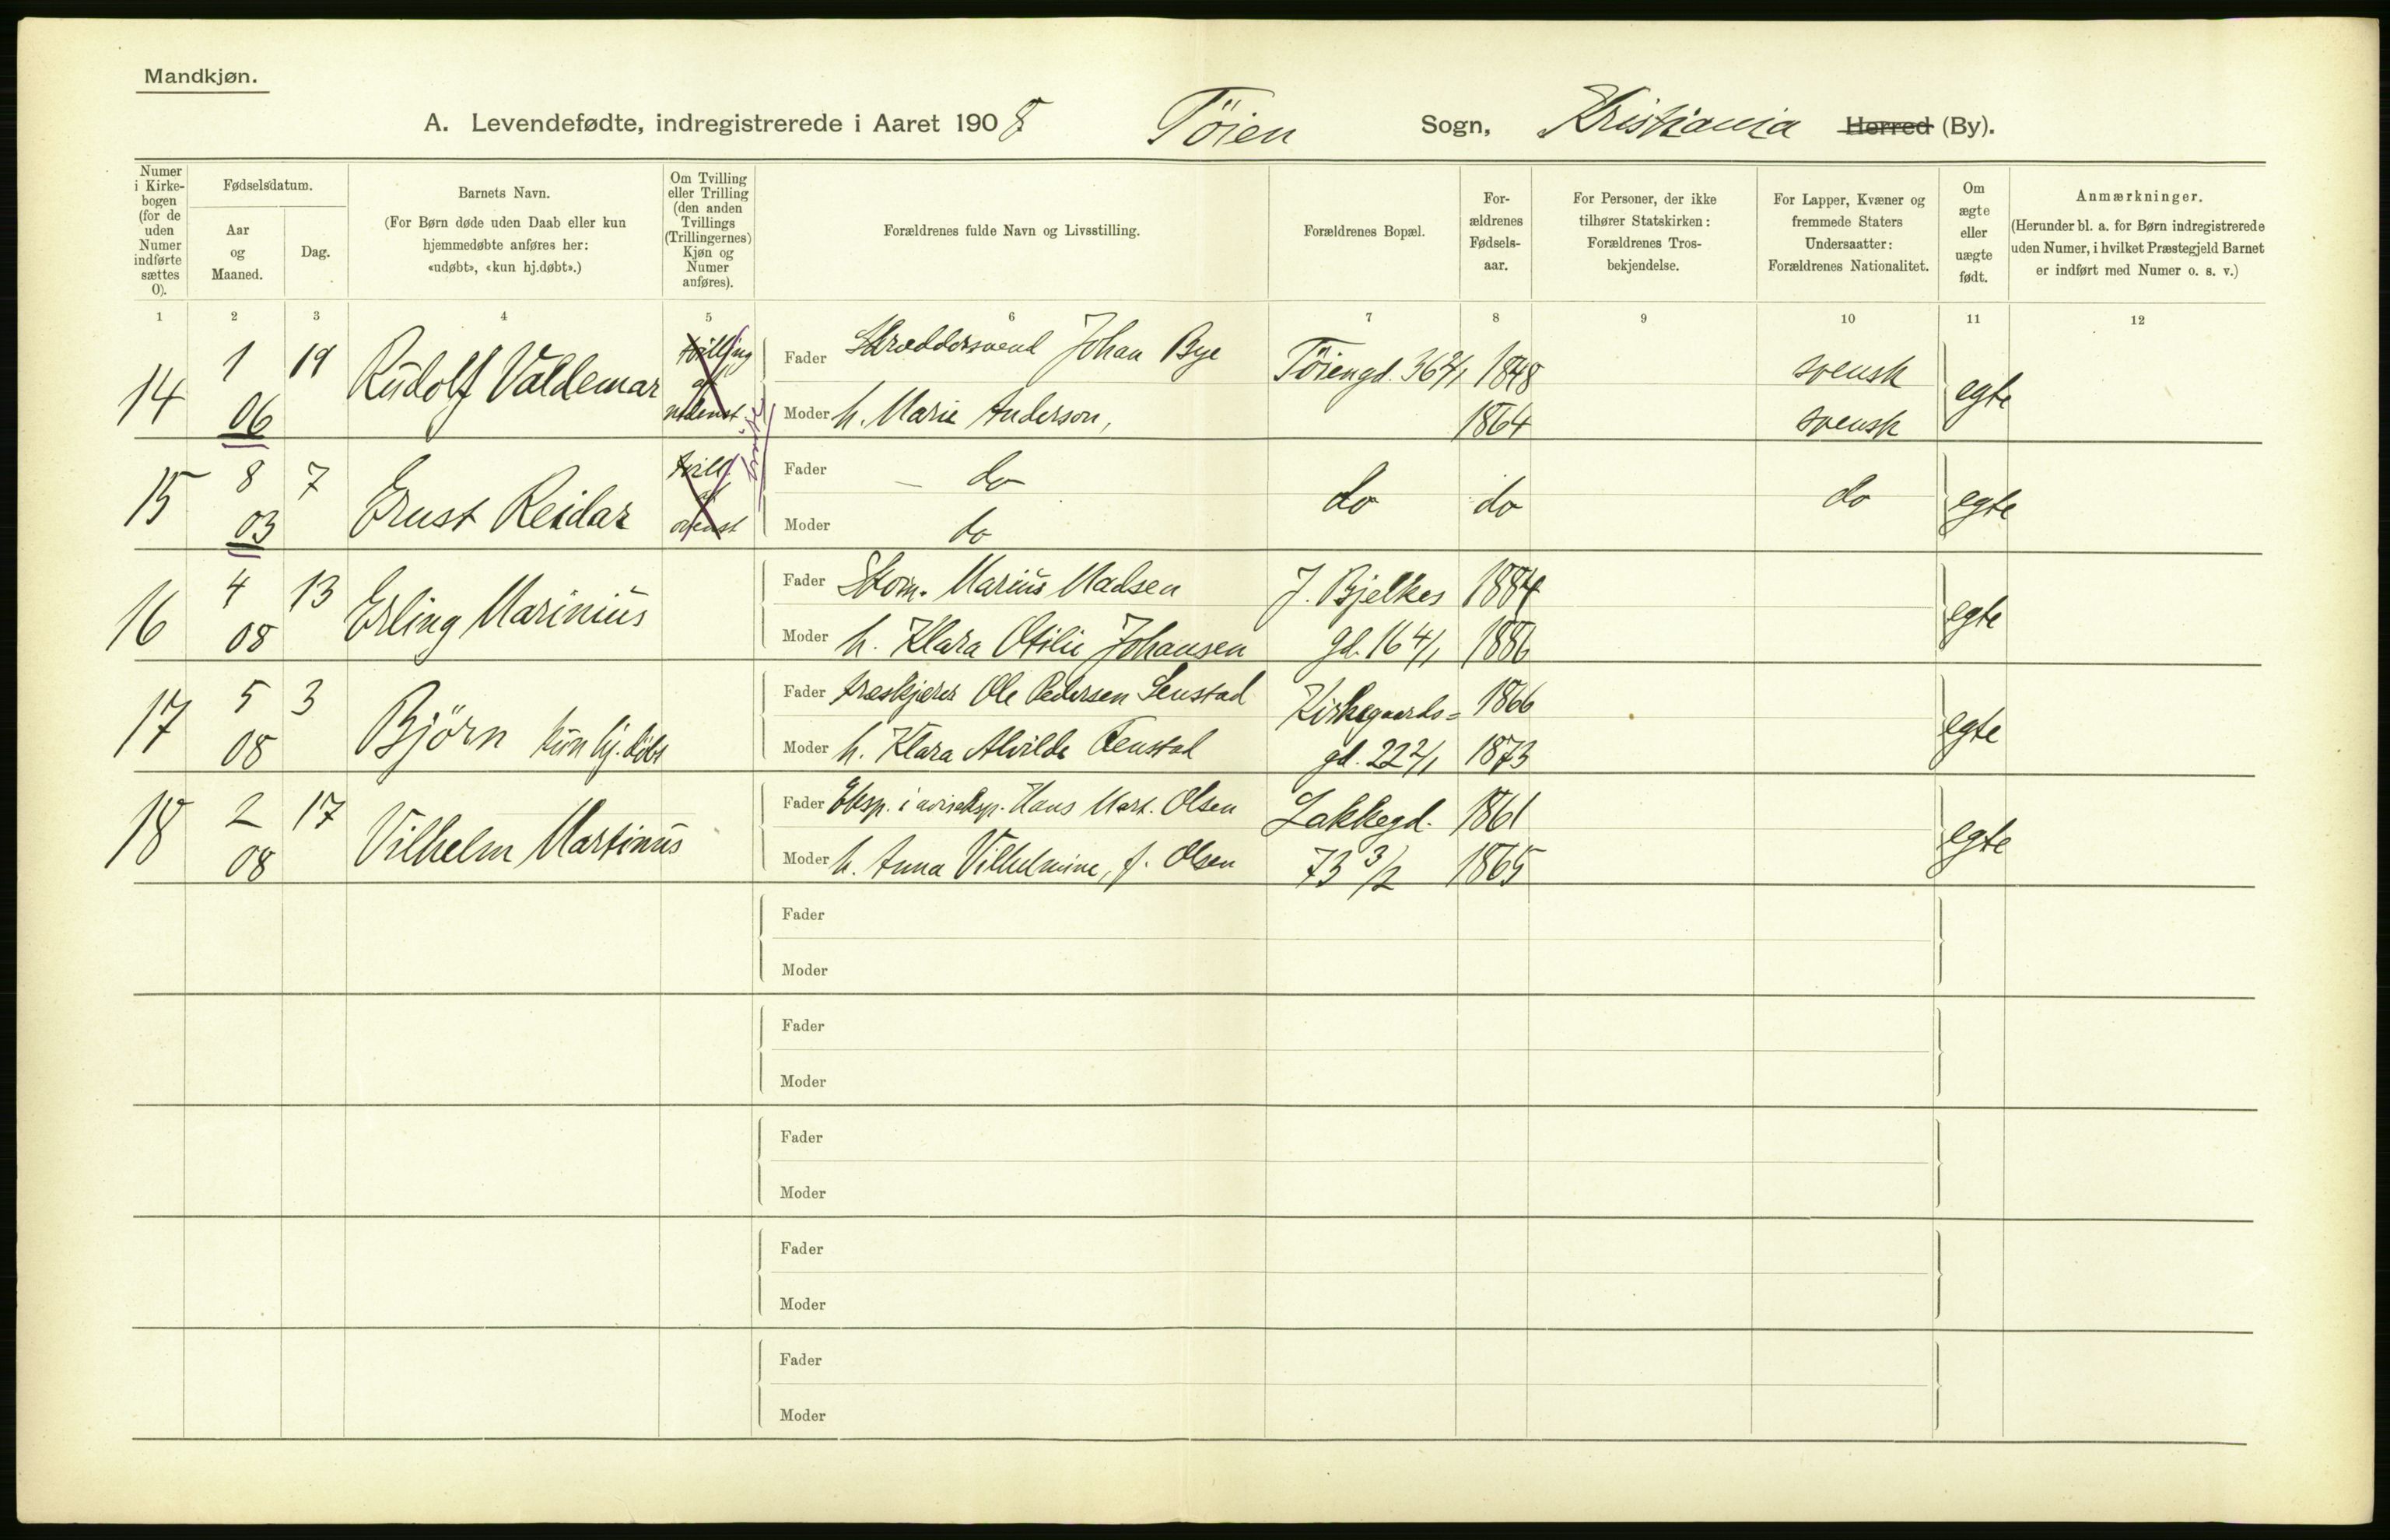 Mandkjøn.
A. Levendefødte, indregistrerede i Aaret 1908 Töien Sogn, Kristiania Herred (By).
Numer i Kirke-bogen (for de uden Numer indførte sættes 0).
Fødselsdatum.
Aar og Maaned.
Dag.
Barnets Navn.
(For Børn døde uden Daab eller kun
hjemmedøbte anføres her:
«udøbt», «kun hj.døbt».)
Om Tvilling
eller Trilling
(den anden
Tvillings
(Trillingernes)
Kjøn og
Numer
anføres).
Forældrenes fulde Navn og Livsstilling.
Forældrenes Bopæl.
For-
ældrenes
Fødsels-
aar.
For Personer, der ikke
tilhører Statskirken:
Forældrenes Tros-
bekjendelse.
For Lapper, Kvæner og
fremmede Staters
Undersaatter:
Forældrenes Nationalitet.
Om
ægte
eller
uægte
født.
Anmærkninger.
(Herunder bl. a. for Børn indregistrerede
uden Numer, i hvilket Præstegjeld Barnet
er indført med Numer o. s. v.)
1 2 3 4 5 6 7 8 9 10 11 12
14 1 06 19 Rudolf Valdemar tvilling af nedenst
Fader Skræddersvend Johan Bye Töiengd. 36 4/1 1848 svensk egte
Moder h. Marie Anderson, 1864 svensk
15 8 03 7 Ernst Reidar tvill af ovenst
Fader do do do do egte
Moder do
16 4 08 13 Erling Marinius
Fader Skom. Marius Madsen J. Bjelkes 1884 egte
Moder h. Klara Otilie Johansen gd. 16 4/1 1886
17 5 08 3 Björn kun hj. döbt
Fader træskjærer Ole Pedersen Senstad Kirkegaards= 1866 egte
Moder h. Klara Alvilde Fenstad gd. 22 2/1 1873
18 2 08 17 Vilhelm Martinus
Fader Eksp. i aviseksp. Hans Mart. Olsen Lakkegd. 1861 egte
Moder h. Anna Vilhelmine, f. Olsen 73 3/2 1865
Fader
Moder
Fader
Moder
Fader
Moder
Fader
Moder
Fader
Moder